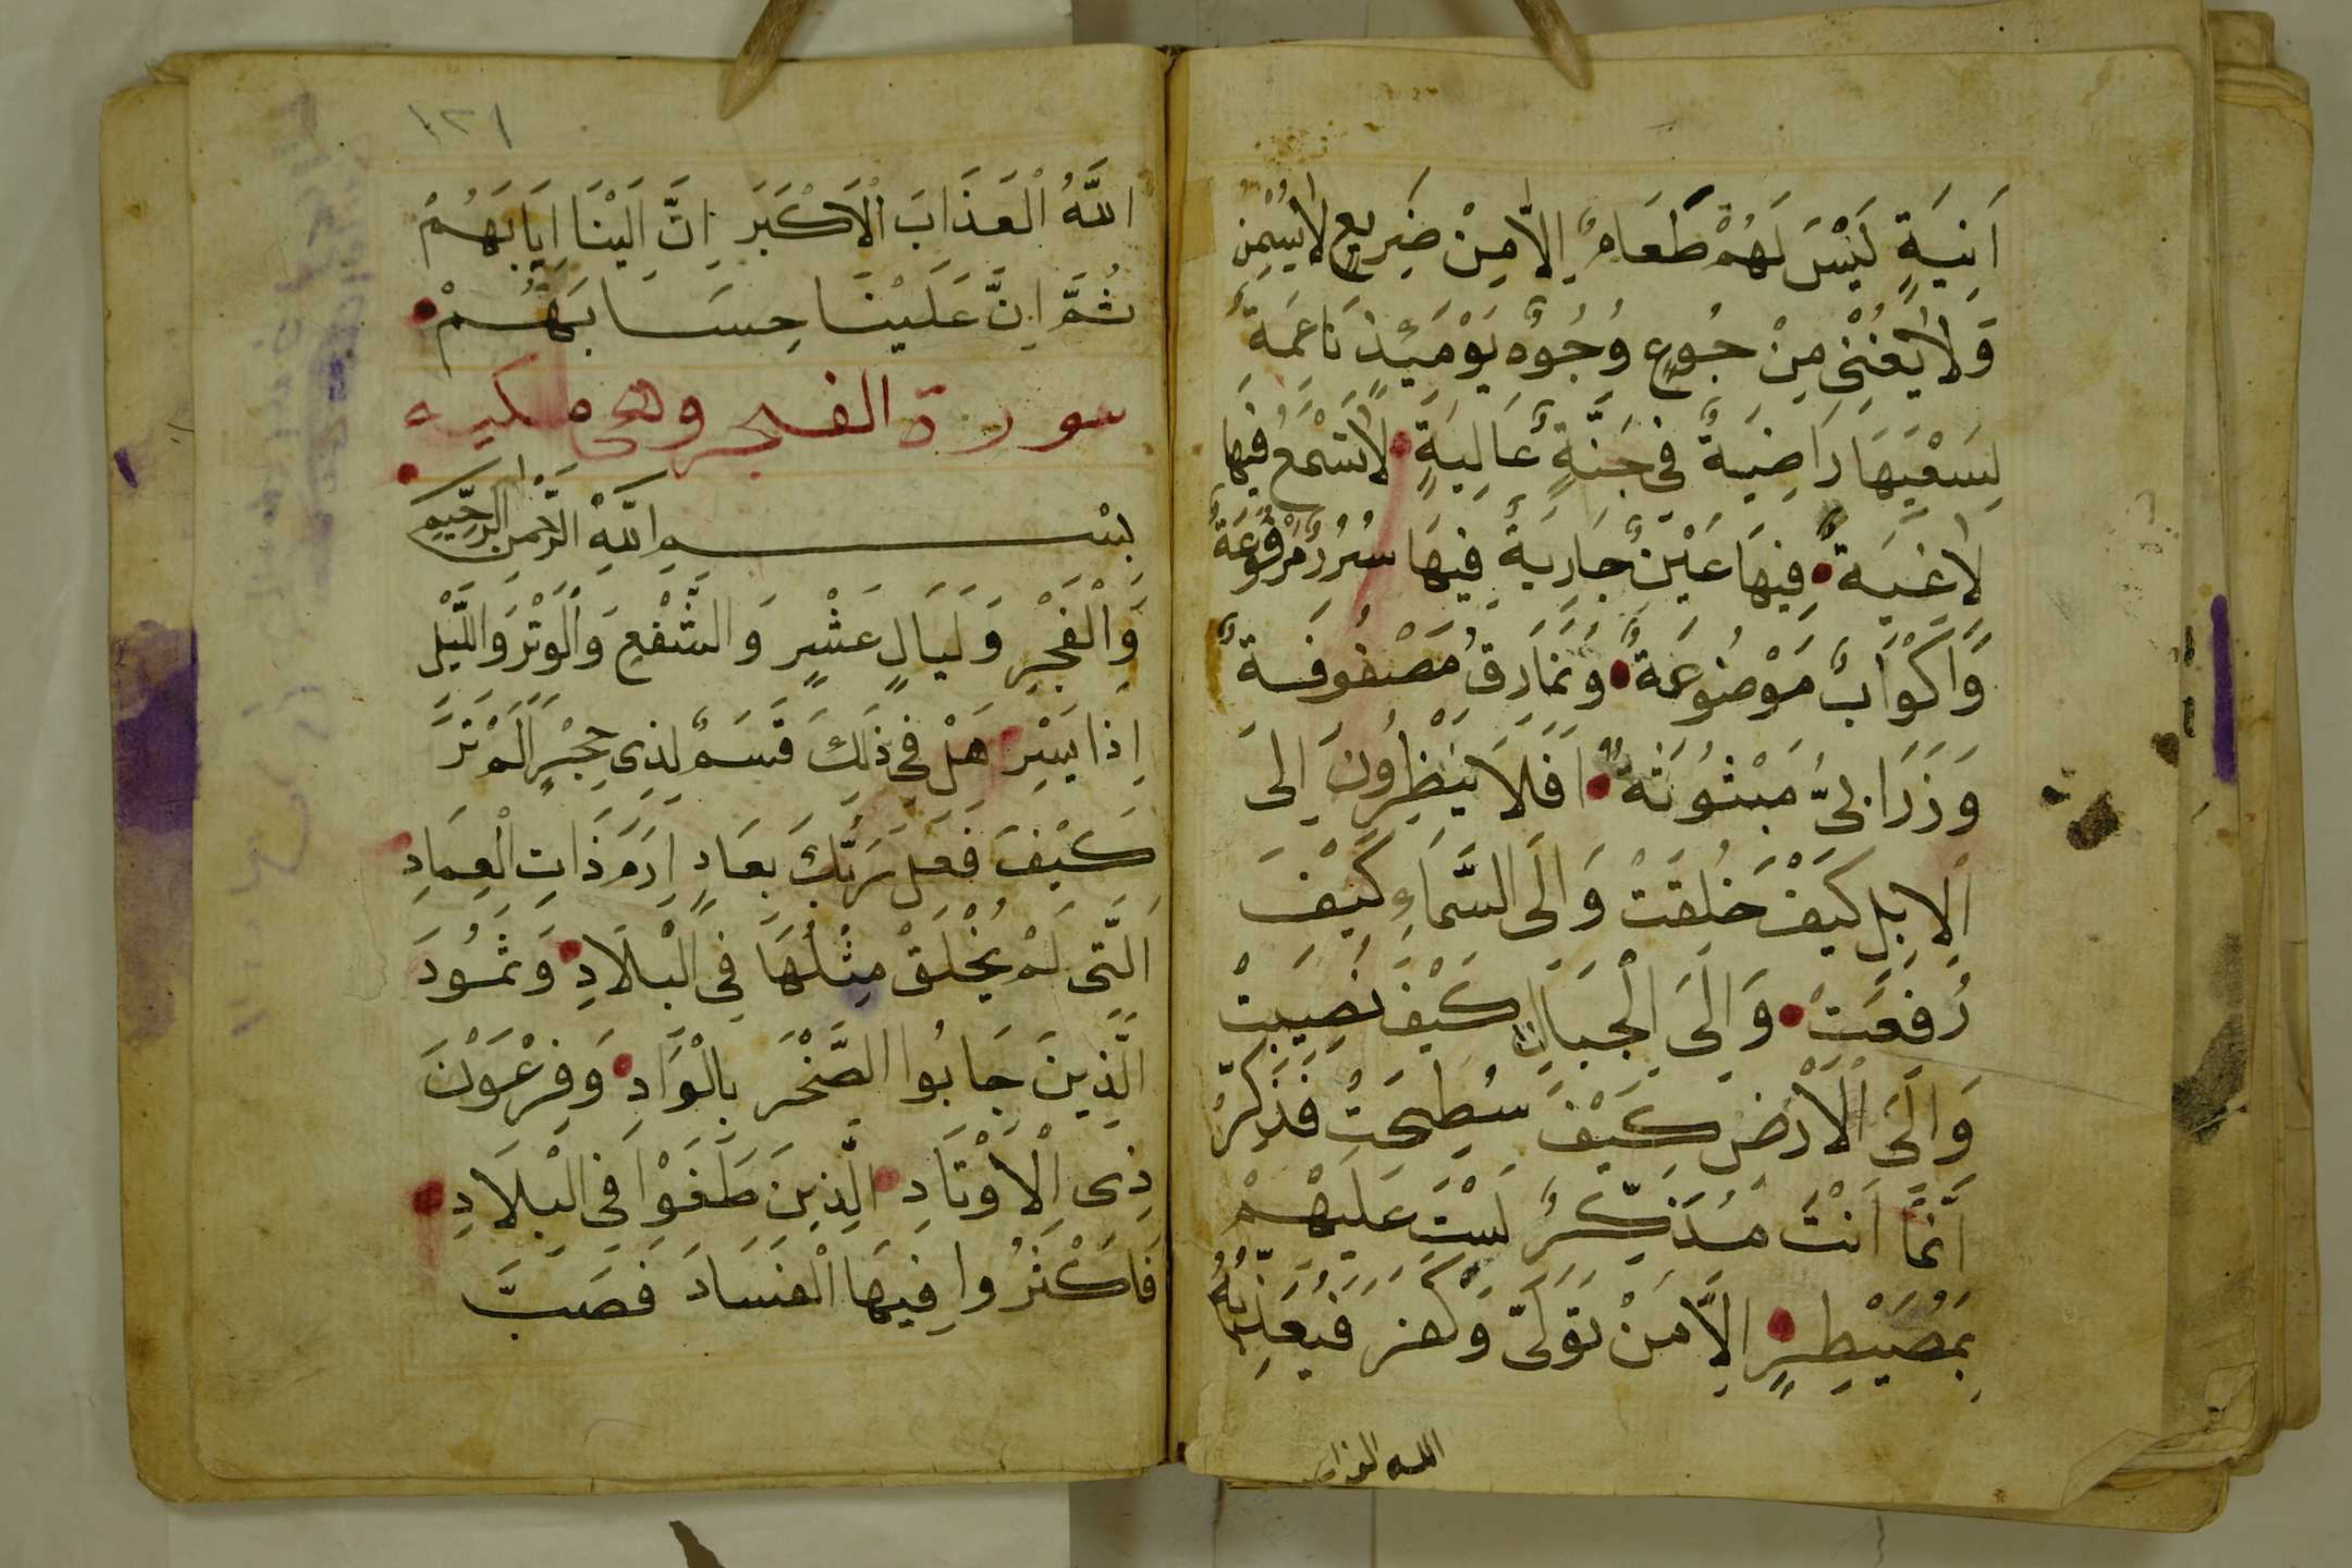 اَنِيَةٍ لَيْسَ لَهُمْ طَعَامٌ اِلَّا مِنْ ضَرِيعٍ لَا يُسْمِنُ
وَلَا يُغْنِى مِنْ جُوعٍ وُجُوهٌ يَوْمَئِذٍ نَاعِمَةٌ
لِسَعْيِهَا رَاضِيَةٌ فِى جَنَّةٍ عَالِيَةٍ لَا تَسْمَعُ فِيهَا
لَاغِيَةً فِيهَا عَيْنٌ جَارِيَةٌ فِيهَا سُرُرٌ مَرْفُوعَةٌ
وَاَكْوَابٌ مَوْضُوعَةٌ وَنَمَارِقُ مَصْفُوفَةٌ
وَزَرَابِىُّ مَبْثُوثَةٌ اَفَلَا يَنْظُرُونَ اِلَى
الْاِبِلِ كَيْفَ خُلِقَتْ وَاِلَى السَّمَاءِ كَيْفَ
رُفِعَتْ وَاِلَى الْجِبَالِ كَيْفَ نُصِبَتْ
وَاِلَى الْاَرْضِ كَيْفَ سُطِحَتْ فَذَكِّرْ
اِنَّمَا اَنْتَ مُذَكِّرٌ لَسْتَ عَلَيْهِمْ
بِمُصَيْطِرٍ اِلَّا مَنْ تَوَلَّى وَكَفَرَ فَيُعَذِّبُهُ
الله العذاب
١٢١
اللَّهُ الْعَذَابَ الْاَكْبَرَ اِنَّ اِلَيْنَا اِيَابَهُمْ
ثُمَّ اِنَّ عَلَيْنَا حِسَابَهُمْ
سورة الفجر وهى مكيه
بِسْمِ اللَّهِ الرَّحْمٰنِ الرَّحِيمِ
وَالْفَجْرِ وَلَيَالٍ عَشْرٍ وَالشَّفْعِ وَالْوَتْرِ وَاللَّيْلِ
اِذَا يَسْرِ هَلْ فِى ذَلِكَ قَسَمٌ لِذِى حِجْرٍ اَلَمْ تَرَ
كَيْفَ فَعَلَ رَبُّكَ بِعَادٍ اِرَمَ ذَاتِ الْعِمَادِ
الَّتِى لَمْ يُخْلَقْ مِثْلُهَا فِى الْبِلَادِ وَثَمُودَ
الَّذِينَ جَابُوا الصَّخْرَ بِالْوَادِ وَفِرْعَوْنَ
ذِى الْاَوْتَادِ الَّذِينَ طَغَوْا فِى الْبِلَادِ
فَاَكْثَرُوا فِيهَا الْفَسَادَ فَصَبَّ